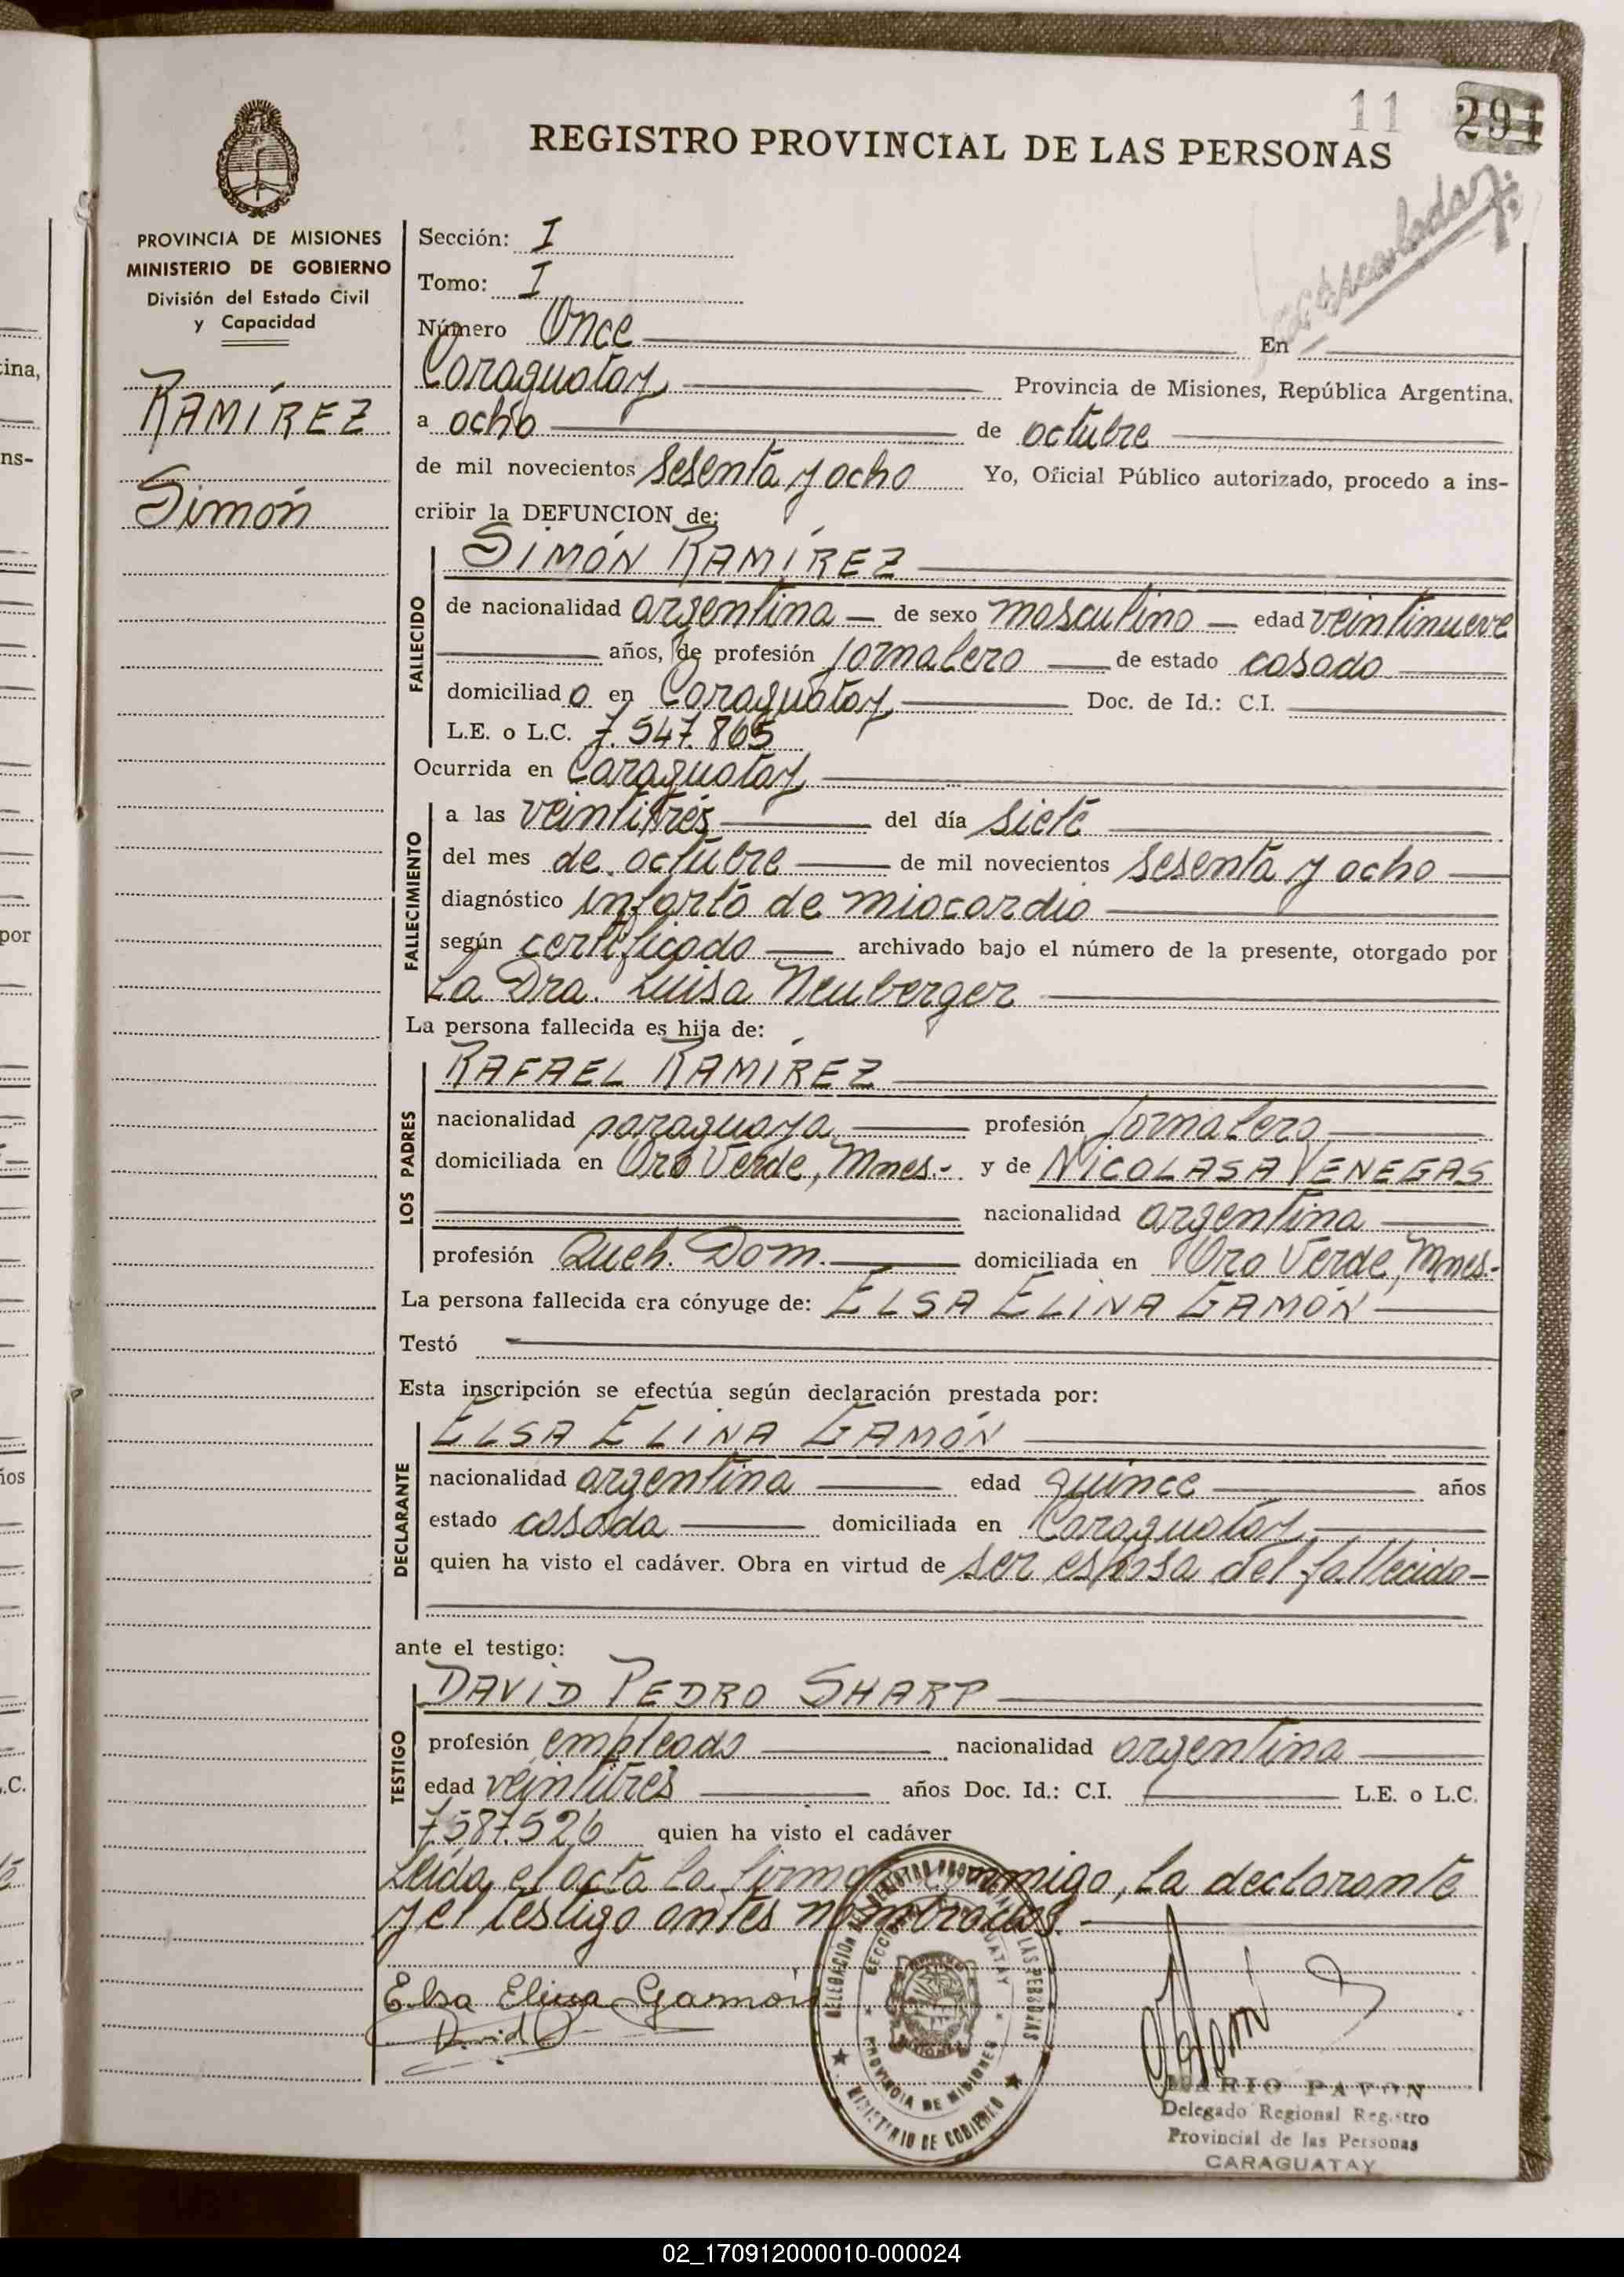 11 291
REGISTRO PROVINCIAL DE LAS PERSONAS
PROVINCIA DE MISIONES
MINISTERIO DE GOBIERNO
División del Estado Civil
y Capacidad
RAMÍREZ
Simón
Sección: I
Tomo: I
Número Once En
Caraguatay Provincia de Misiones, República Argentina.
a ocho de octubre
de mil novecientos sesenta y ocho Yo, Oficial Público autorizado, procedo a ins-
cribir la DEFUNCION de:
FALLECIDO
SIMÓN RAMÍREZ
de nacionalidad argentina de sexo masculino edad veintinueve
años, de profesión jornalero de estado casado
domiciliado en Caraguatay Doc. de Id.: C.I.
L.E. o L.C. 7.547.865
Ocurrida en Caraguatay
FALLECIMIENTO
a las veintitrés del día siete
del mes de octubre de mil novecientos sesenta y ocho
diagnóstico infarto de miocardio
según certificado archivado bajo el número de la presente, otorgado por
La Dra. Luisa Neuberger
La persona fallecida es hija de:
LOS PADRES
RAFAEL RAMÍREZ
nacionalidad paraguaya profesión jornalero
domiciliada en Oro Verde, Mnes.- y de NICOLASA VENEGAS
nacionalidad argentina
profesión Queh. Dom. domiciliada en Oro Verde, Mnes.-
La persona fallecida era cónyuge de: ELSA ELINA GAMÓN
Testó
Esta inscripción se efectúa según declaración prestada por:
DECLARANTE
ELSA ELINA GAMÓN
nacionalidad argentina edad quince años
estado casada domiciliada en Caraguatay
quien ha visto el cadáver. Obra en virtud de ser esposa del fallecido-
ante el testigo:
TESTIGO
DAVID PEDRO SHARP
profesión empleado nacionalidad argentina
edad veintitres años Doc. Id.: C.I. L.E. o L.C.
7.587.526 quien ha visto el cadáver
Leída el acta la firman conmigo, la declarante
y el testigo antes nombrados.-
Elsa Elina Gamón
David
DELEGACION REGISTRO PROVINCIAL DE LAS PERSONAS
PROVINCIA DE MISIONES
MINISTERIO DE GOBIERNO
MARIO PAVON
Delegado Regional Registro
Provincial de las Personas
CARAGUATAY
02_170912000010-000024